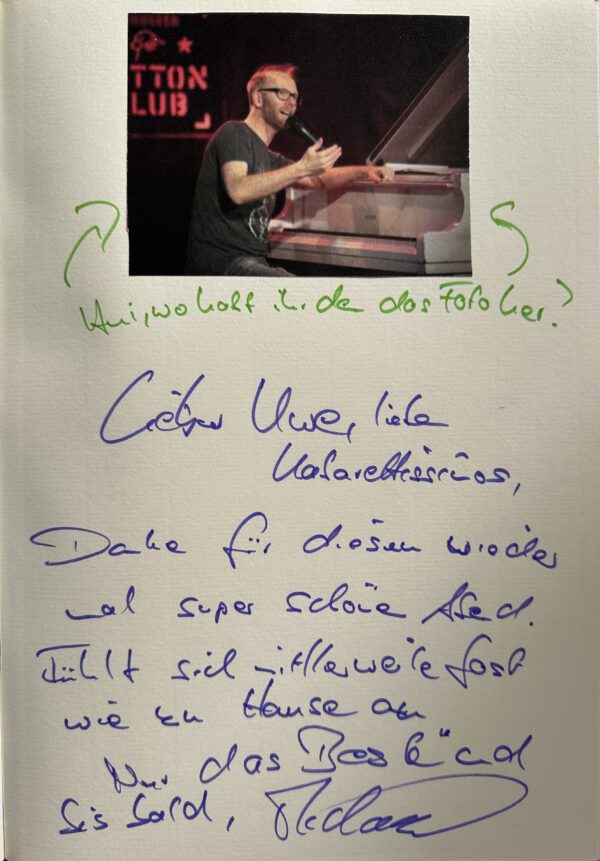 TTON
LUB
Hui, wo habt ihr da das Foto her?
Lieber Uwe, liebe
Kabarettissimos,
Danke für diesen wieder
mal super schönen Abend.
Fühlt sich mittlerweile fast
wie zu Hause an
Nur das Beste und
bis bald,